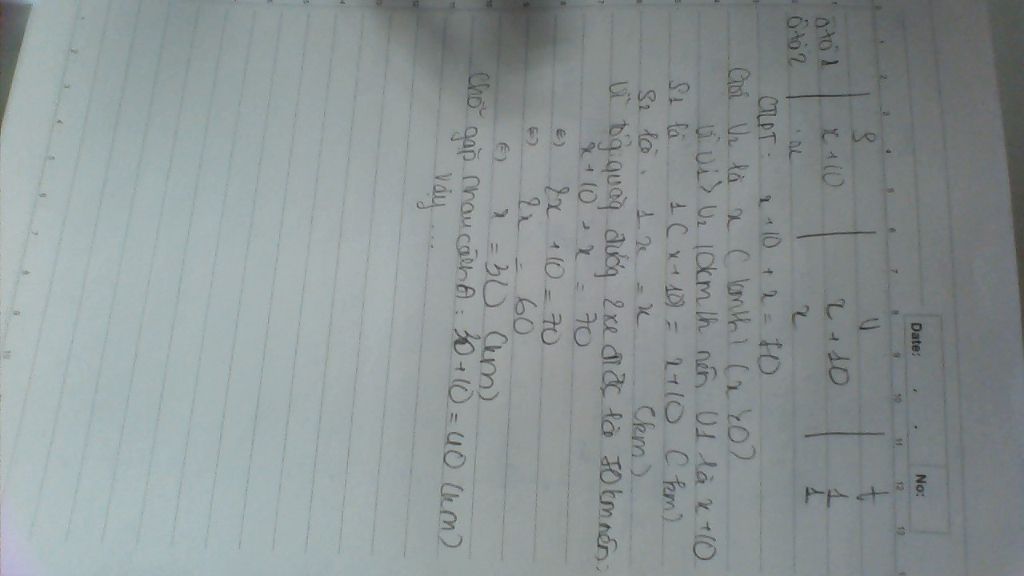 Date: No:
S V t
ôtô 1 x+10 x+10 1
ôtô 2 x x 1
CTLPT: x+10+x=70
Gọi V2 là x (km/h) (x>0)
Vì V1>V2 10km/h nên V1 là x+10
S1 là 1(x+10) = x+10 (km)
S2 là 1.x = x (km)
Vì tổng quãng đường 2 xe đi đc là 70km nên:
x+10+x=70
⇔ 2x+10=70
⇔ 2x = 60
⇔ x=30 (km)
Chỗ gặp nhau cách A: 30+10=40 (km)
Vậy ...